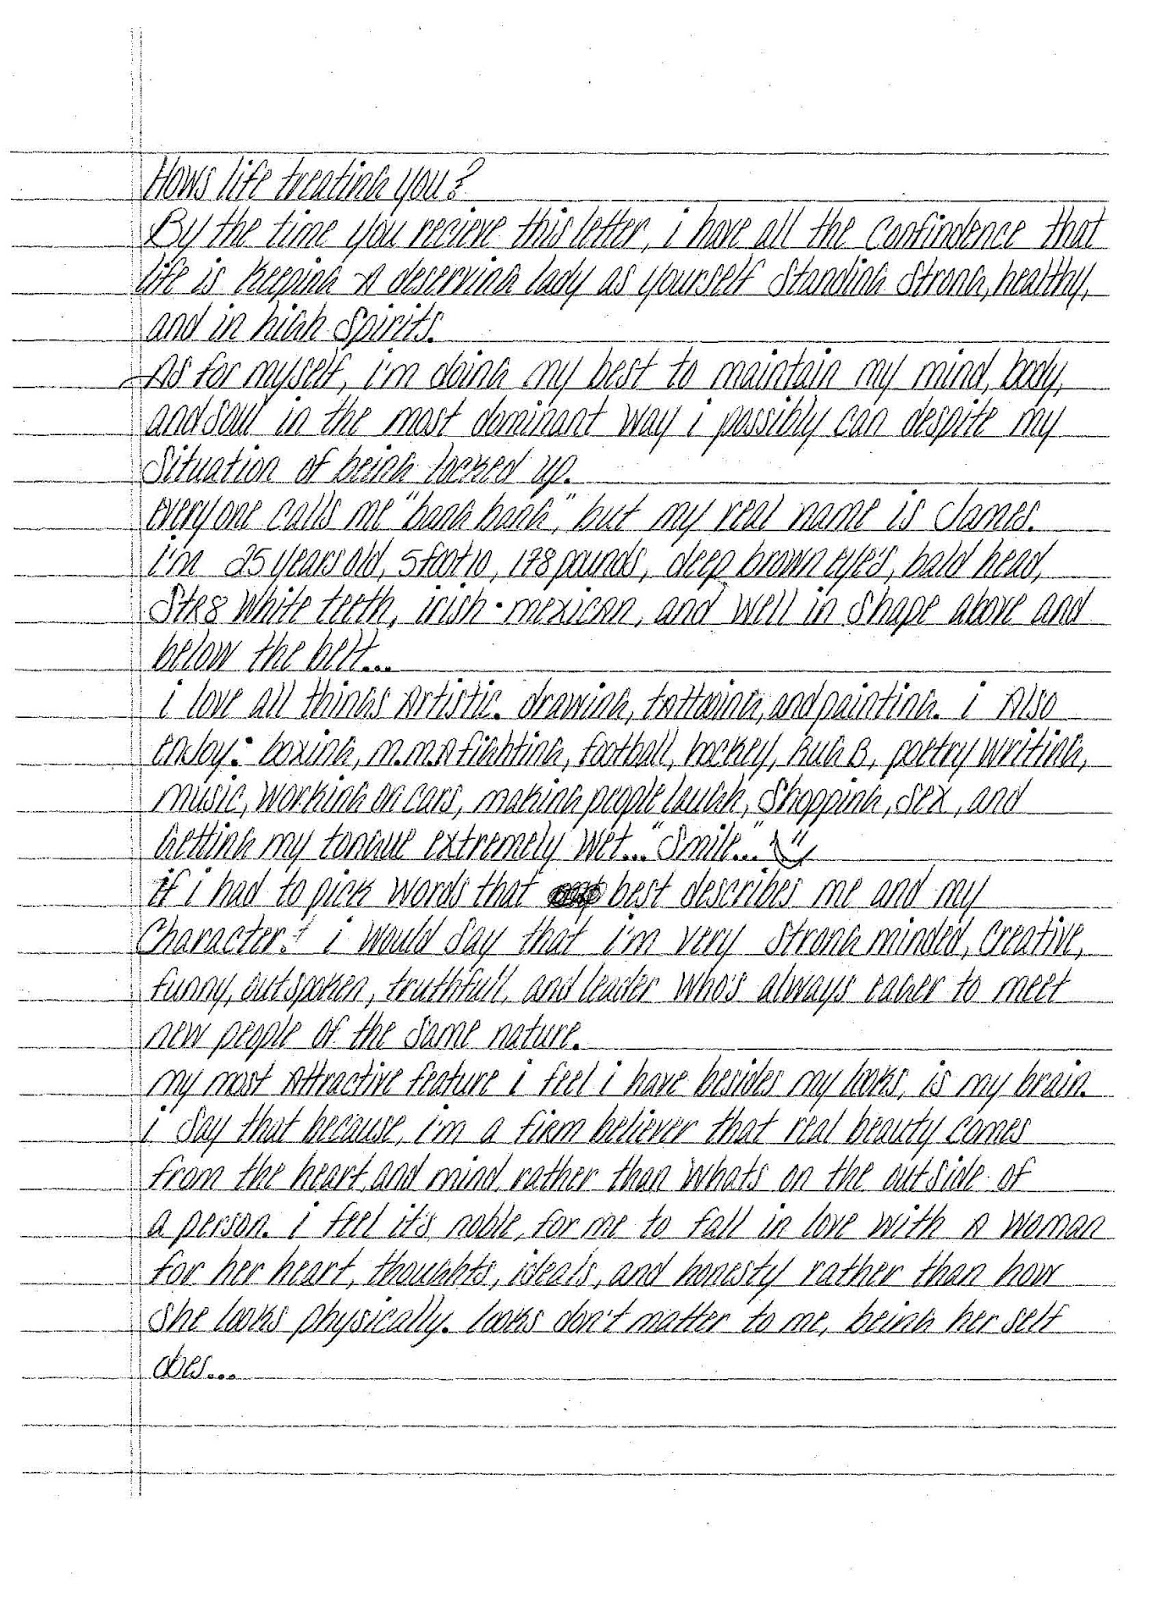 Hows life treating you?
By the time you recieve this letter, i have all the confindence that
life is keeping A deserving lady as yourself standing strong, healthy,
and in high spirits.
As for myself, i'm doing my best to maintain my mind, body,
and soul in the most dominant way i possibly can despite my
situation of being locked up.
everyone calls me "bang bang", but my real name is James.
i'm 25 years old, 5 foot 10, 178 pounds, deep brown eye's, bald head,
Str8 white teeth, irish • mexican, and well in shape above and
below the belt...
i love all things Artistic. drawing, tattooing, and painting. i Also
enjoy: boxing, m.m.A fighting, football, hockey, R n B, poetry writing,
music, working on cars, making people laugh, shopping, sex, and
getting my tongue extremely wet... "smile..."
if i had to pick words that best describes me and my
character? i would say that i'm very strong minded, creative,
funny, outspoken, truthfull, and leader who's always eager to meet
new people of the same nature.
my most Attractive feature i feel i have besides my looks, is my brain.
i say that because, i'm a firm believer that real beauty comes
from the heart and mind rather than whats on the outside of
a person. i feel it's noble, for me to fall in love with A woman
for her heart, thoughts, ideals, and honesty rather than how
she looks physically. looks don't matter to me, being her self
does...